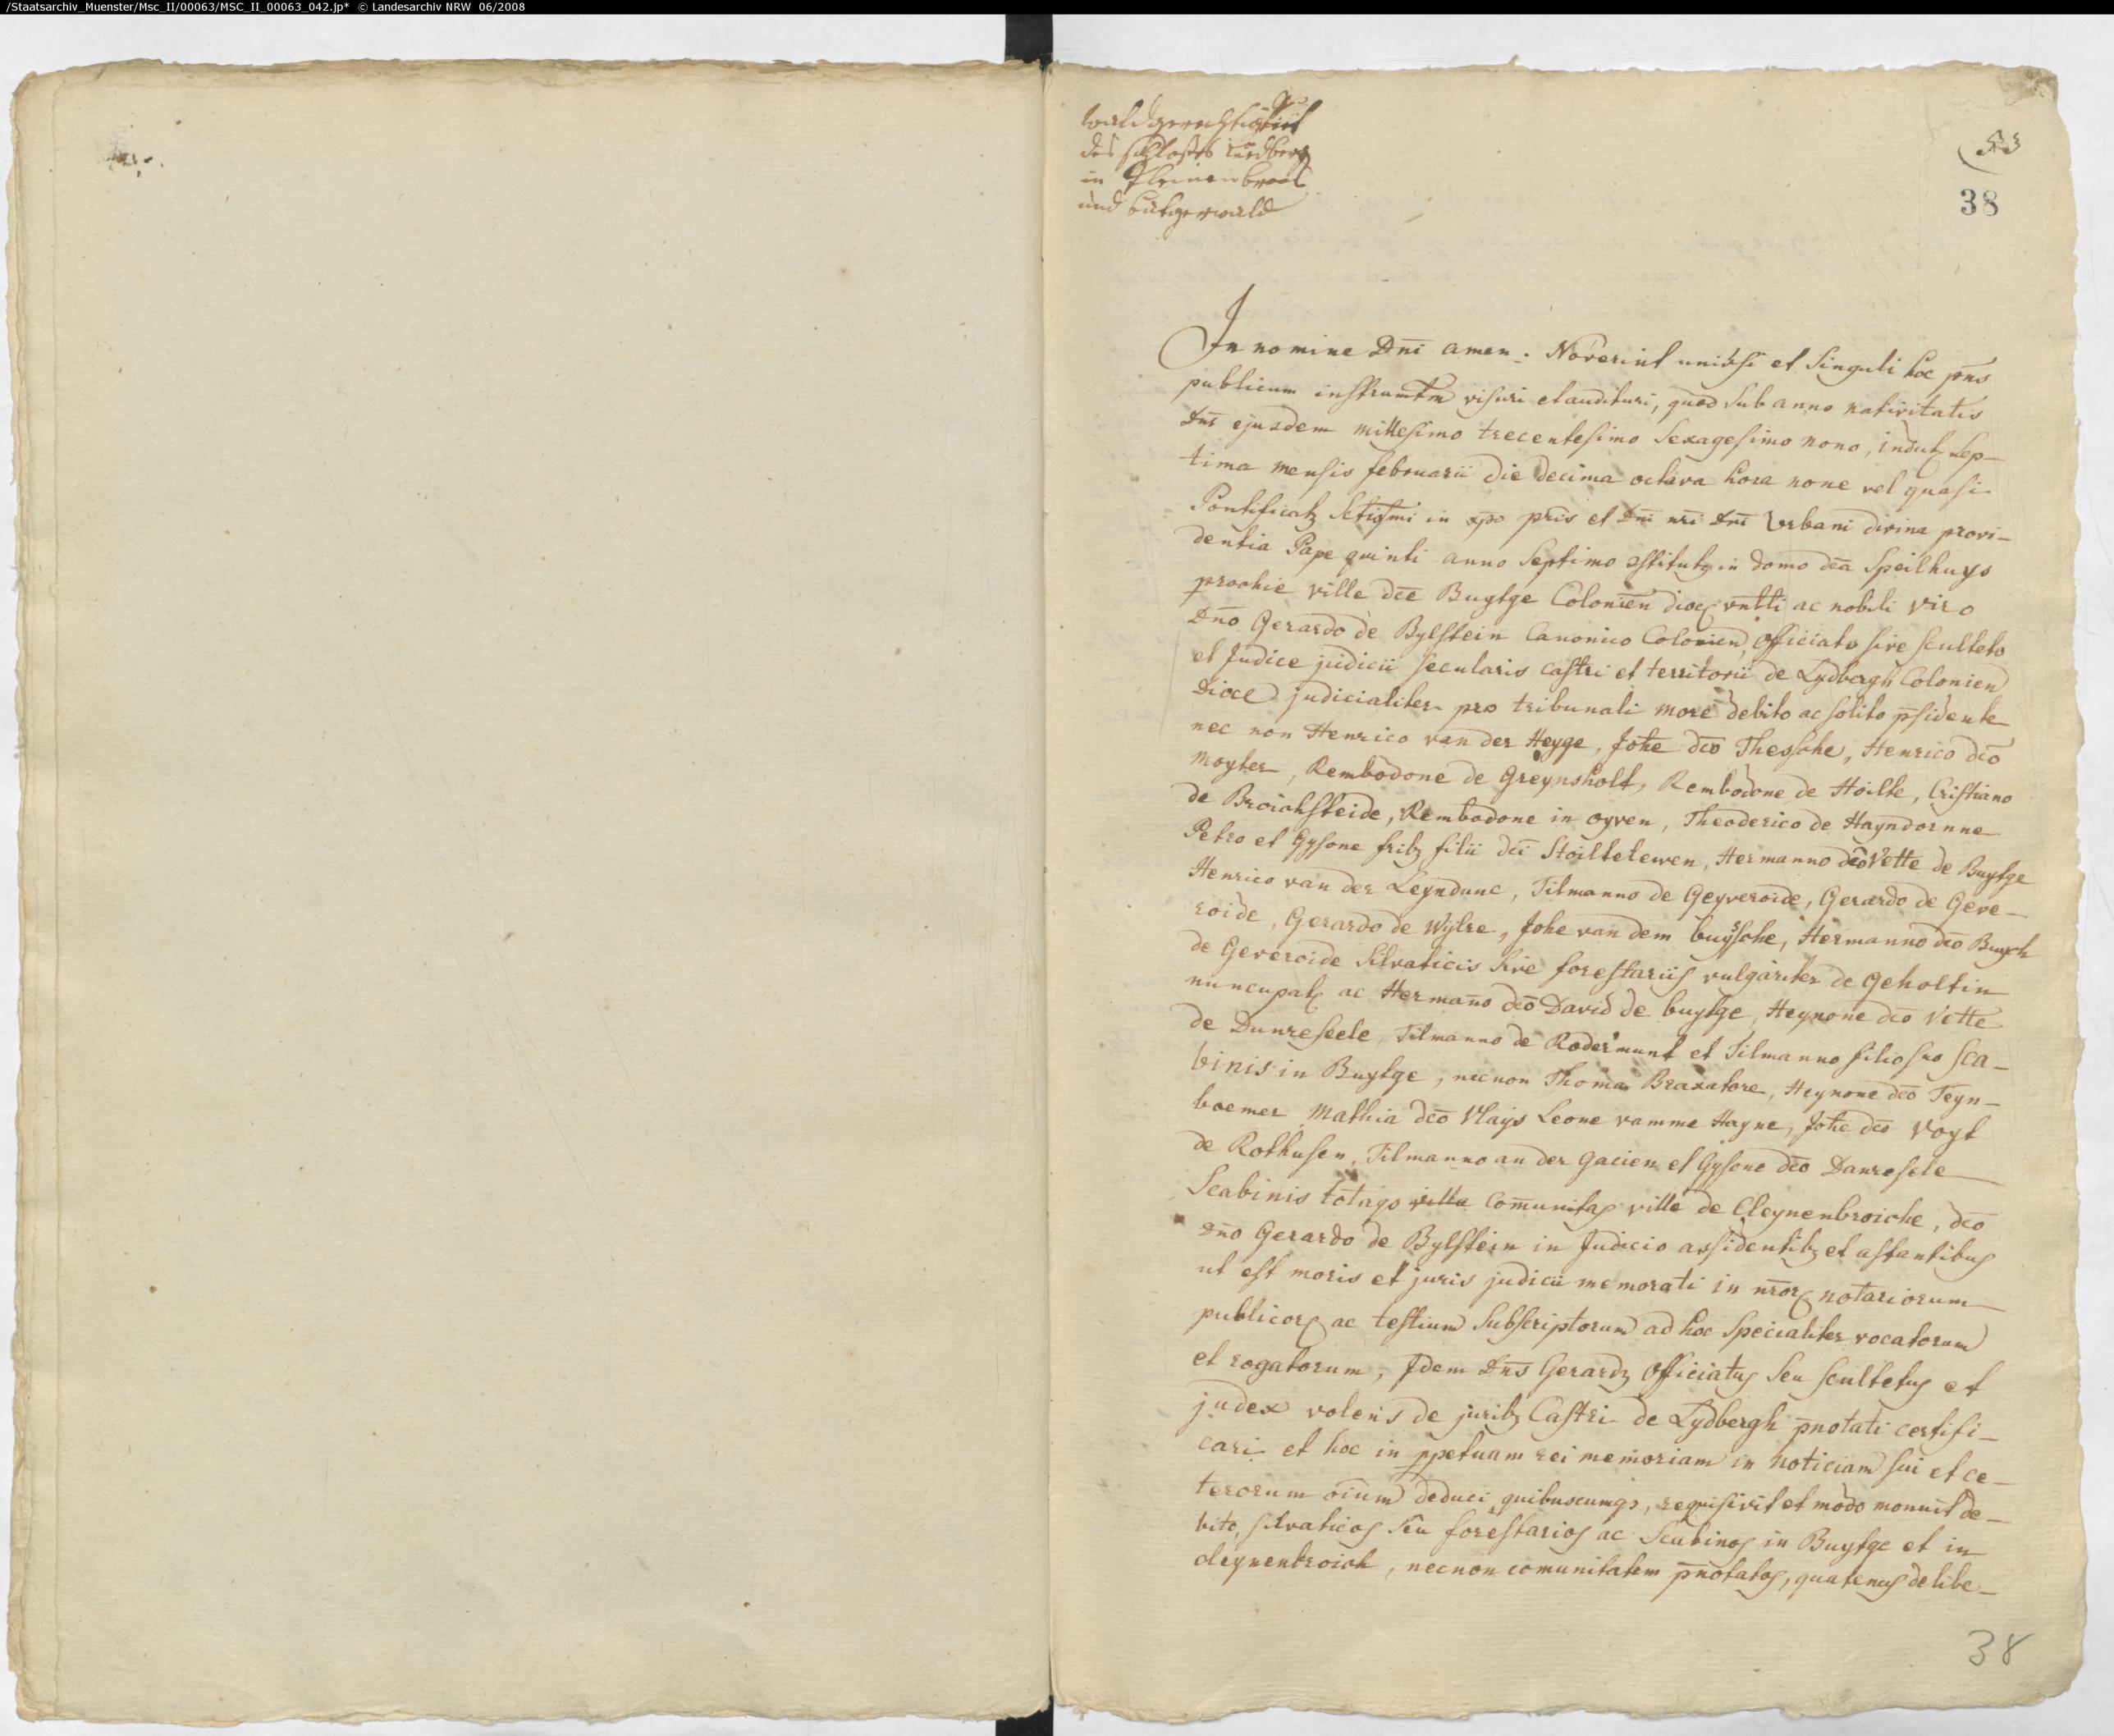 /Staatsarchiv_Muenster/Msc_II/00063/MSC_II_00063_042.jp* © Landesarchiv NRW 06/2008
waldgerechtigkeit
des schlosses Liedberg
in Kleinenbroich
und Bütgerwald
53
38
In nomine Dnī amen. Noverint univsi et singuli hoc pn̄s
publicum instrumtm visuri et audituri, quod sub anno nativitatis
Dnī ejusdem millesimo trecentesimo sexagesimo nono, indict sep-
tima mensis februarii die decima octava hora none vel quasi
Pontificatꝫ sctissmi in xp̄o pr̄is et Dnī nr̄i Dnī Urbani divina provi-
dentia Pape quinti anno septimo in domo dc̄a Speilhuys
prochie ville dc̄e Buytge Colonien̄ dioc vn̄lli ac nobili viro
Dn̄o Gerardo de Bylstein Canonico Colonien, officiato sive sculteto
et Judice judicii secularis castri et territorii de Lydbergh Colonien
Dioce judicialiter pro tribunali more debito ac solito p̄sidente
nec non Henrico van der Heyge, Johe dc̄o Thessche, Henrico dc̄o
Moyter, Rembodone de Greynsholt, Rembodone de Hoilte, Cristiano
de Broichsteide, Rembodone in oyven, Theoderico de Hayndornne
Petro et Gysone fribꝫ filii dc̄i Stoiltelewen, Hermanno dc̄o Vette de Buytge
Henrico van der Leyndune, Tilmanno de Geyveroide, Gerardo de Geve-
roide, Gerardo de Wylre, Johe van dem buyssche, Hermanno dc̄o Buysch
de Geveroide silvaticis sive forestariis vulgariter de Geholtin
nuncupat ac Herman̄o dc̄o David de buytge, Heynone dc̄o Vette
de Dunreseele, Tilmanno de Rodermunt et Tilmanno filio suo sca-
binis in Buytge, necnon Thoma Braxatore, Heynone dc̄o Teyn-
boemer Mathia dc̄o Vlays Leone vamme Hayne, Johe dc̄o Voyt
de Rothusen, Tilmanno an der Gacien et Gysone dc̄o Danresele
Scabinis totaqꝫ villa com̄unitas ville de Cleynenbroiche, dc̄o
Dn̄o Gerardo de Bylstein in Judicio assidentibꝫ et astantibus
ut est moris et juris judicii memorati in nr̄or notariorum
publicor ac testium subscriptorum ad hoc specialiter vocatorum
et rogatorum, Idem Dn̄s Gerardꝫ officiatus seu scultetus et
judex volens de juribꝫ Castri de Lydbergh p̄notati certifi-
cari et hoc in ppetuam rei memoriam in noticiam sui et ce-
terorum oīum deduci quibuscumqꝫ, requisivit et modo monuit de-
bito, silvaticos seu forestarios ac Scabinos in Buytge et in
cleynenbroich, necnon comunitatem p̄notatos, quatenus delibe-
38